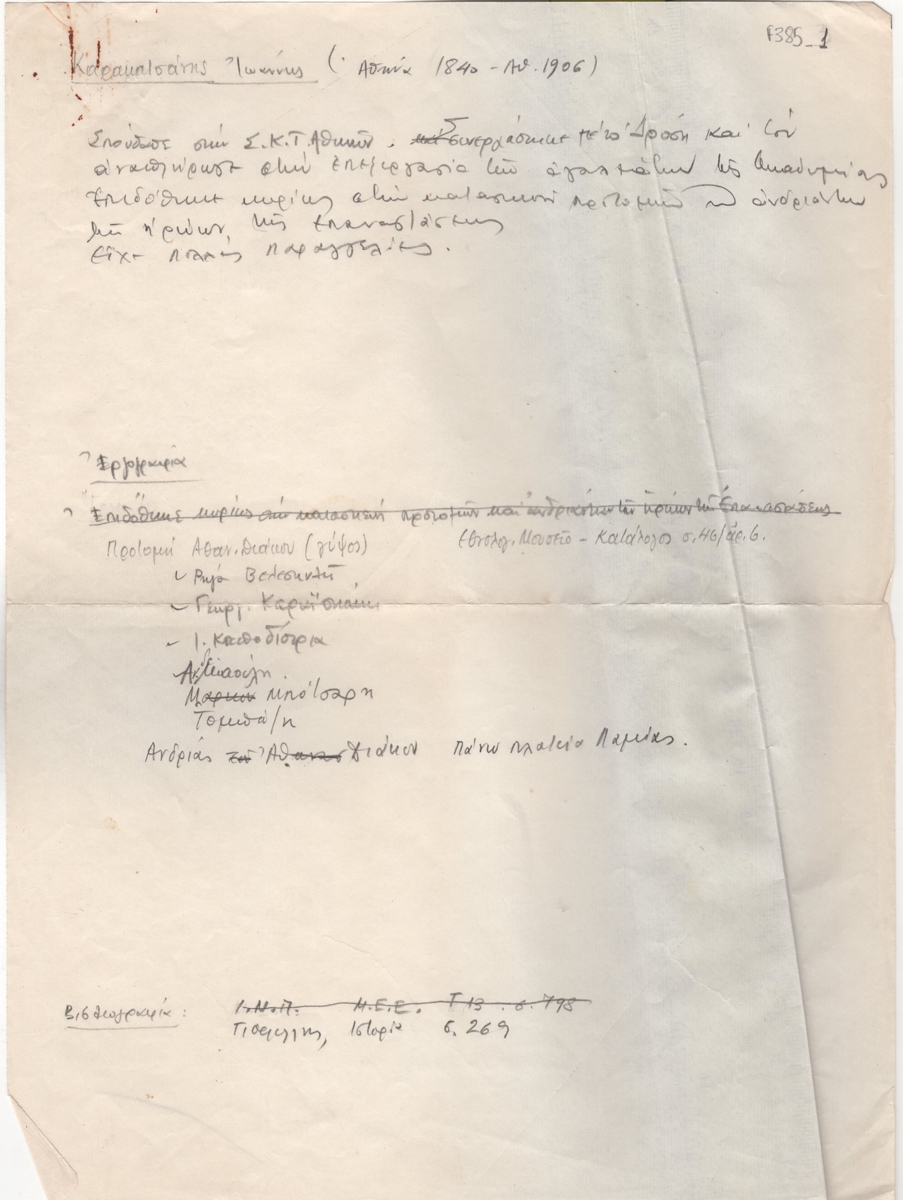 F385_1
Καρακατσάνης Ἰωάννης (Ἀθήνα 1840 - Ἀθ. 1906)
Σπούδασε στήν Σ.Κ.Τ. Ἀθηνῶν. Συνεργάστηκε μέ τό Δρόση καί τόν
στήν ἐπεξεργασία τῶν ἀγαλμάτων τῆς Ἀκαδημίας
Ἐπιδόθηκε κυρίως στήν κατασκευή προτομῶν ἀνδριάντων
τῶν ἡρώων τῆς Ἐπαναστάσεως
Εἶχε πολλές παραγγελίες.
Ἐργογραφία
Ἐπιδόθηκε κυρίως στήν κατασκευή προτομῶν καί ἀνδριάντων τῶν ἡρώων τῆς Ἐπαναστάσεως
Προτομή Ἀθαν. Διάκου (γύψος) Ἐθνολογ. Μουσεῖο - Κατάλογος σ. 46/ἀρ. 6.
Ρήγα Βελεστινλῆ
Γεωργ. Καραϊσκάκη
Ι. Καποδίστρια
Μάρκου Μπότσαρη
Τομπάζη
Ἀνδριάς τοῦ Ἀθανασ Διάκου πάνω πλατεία Λαμίας.
Βιβλιογραφία: Ι.Μ.Π. Μ.Ε.Ε. Τ 13 σ. 798
Ἱστορία σ. 269